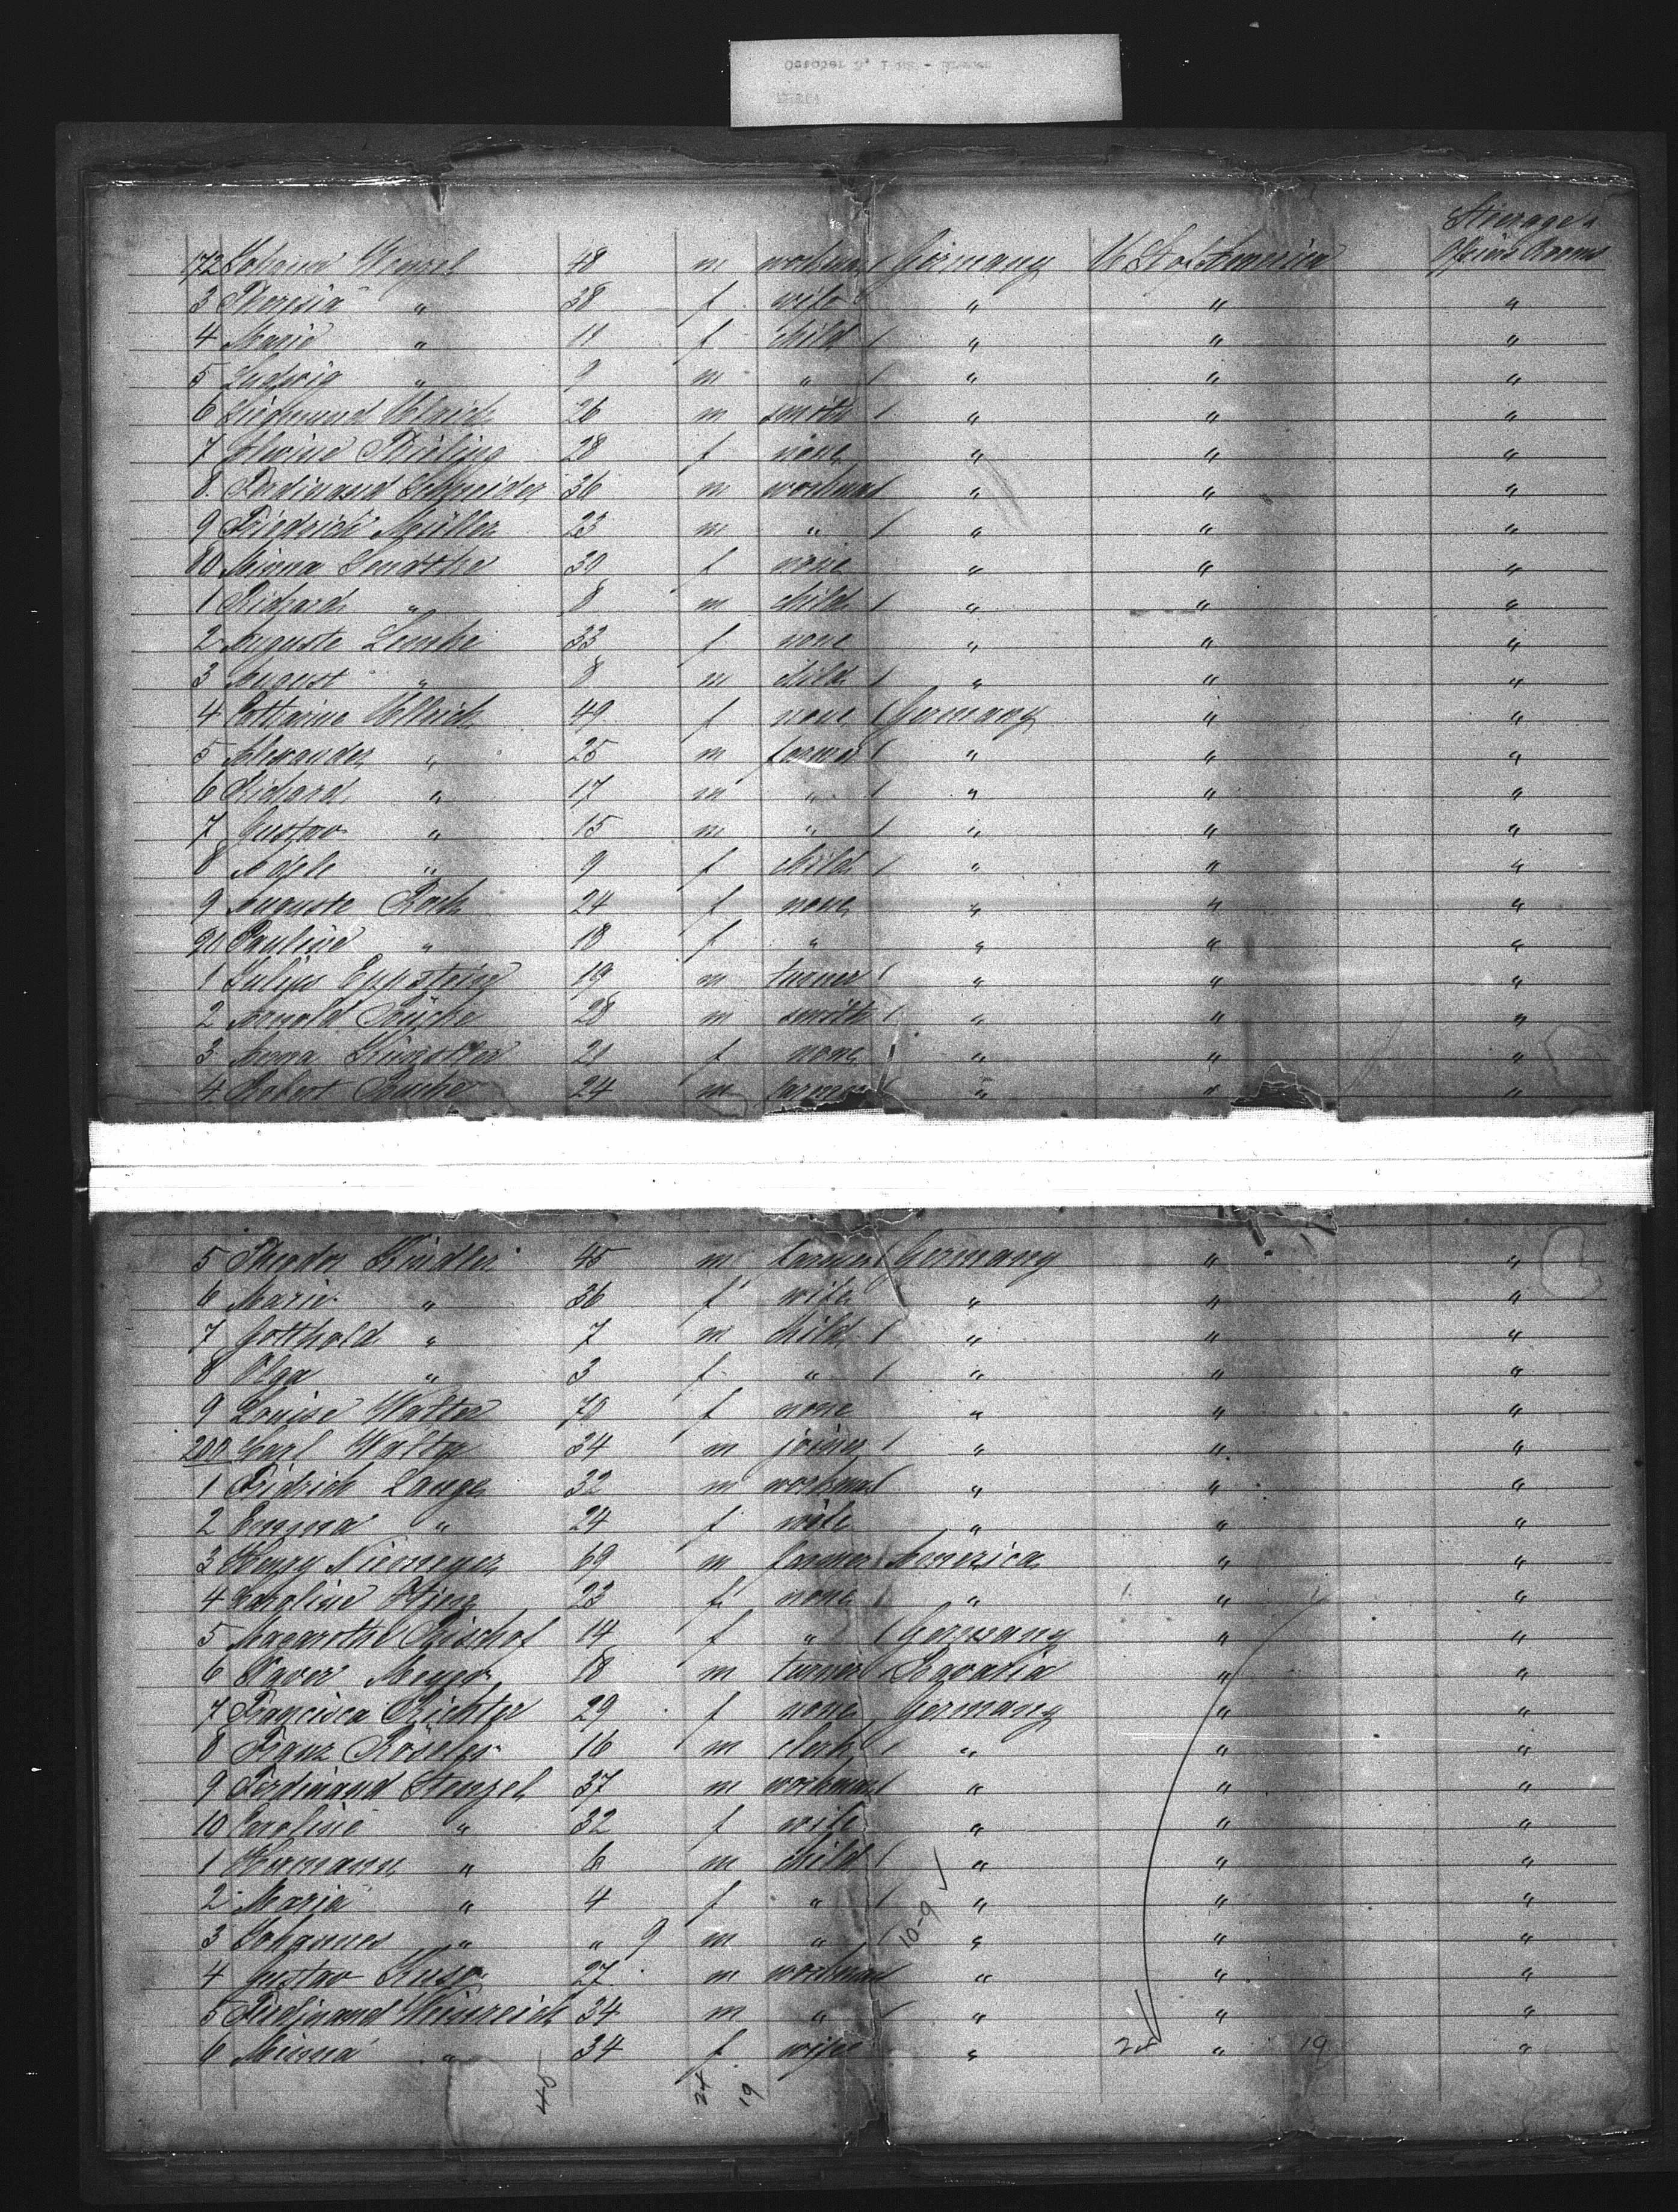 October
Steerage
172 Johann Wenzel 48 m workman / Germany U St of America Officiers Rooms
3 Theresia " 38 f wife " " "
4 Marie " 11 f child / " " "
5 Ludwig " 9 m " / " " "
6 Siegmund Ulrich 26 m smith / " " "
7 28 f none " " "
8 Ferdinand Schneider 36 m workman " " "
9 Friedrich Müller 23 m " / " " "
80 Minna 30 f none " " "
1 Richard " 8 m child / " " "
2 Auguste Lemke 33 f none " " "
3 August " 8 m child / " " "
4 Catharine Ullrich 49 f none / Germany " "
5 Alexander " 25 m farmer / " " "
6 Richard " 17 m " / " " "
7 Gustav " 15 m " / " " "
8 Adele " 9 f child / " " "
9 Auguste Koch 24 f none " " "
90 Pauline " 18 f " " " "
1 Julius Eppstein 19 m turner / " " "
2 Arnold 28 m smith / " " "
3 Anna 21 f none " " "
4 Robert 24 m farmer / " " "
5 Theodor Kindler 45 m farmer / Germany " "
6 Marie " 36 f wife " " "
7 Gotthold " 7 m child / " " "
8 Olga " 3 f " / " " "
9 Louise Walter 70 f none " " "
200 Carl Walter 34 m joiner / " " "
1 Fridrich Lange 32 m workman " " "
2 Emma " 24 f wife " " "
3 Henry Niemeyer 69 m farmer America " "
4 Karoline 23 f none / " " "
5 Magarethe Bischof 14 f " / Germany " "
6 Xaver Meyer 18 m turner Bavaria " "
7 Francisca Richter 29 f none Germany " "
8 Franz 16 m clerk / " " "
9 Ferdinand Stenzel 37 m workman / " " "
10 Caroline " 32 f wife " " "
1 Hermann " 6 m child / " " "
2 Maria " 4 f " / " " "
3 Johannes " " 9 m " / 10-9 " " "
4 Gustav 27 m workman " " "
5 Ferdinand Heinreich 34 m " / " " "
6 Minna " 34 f wife " " 19 "
45 24 19